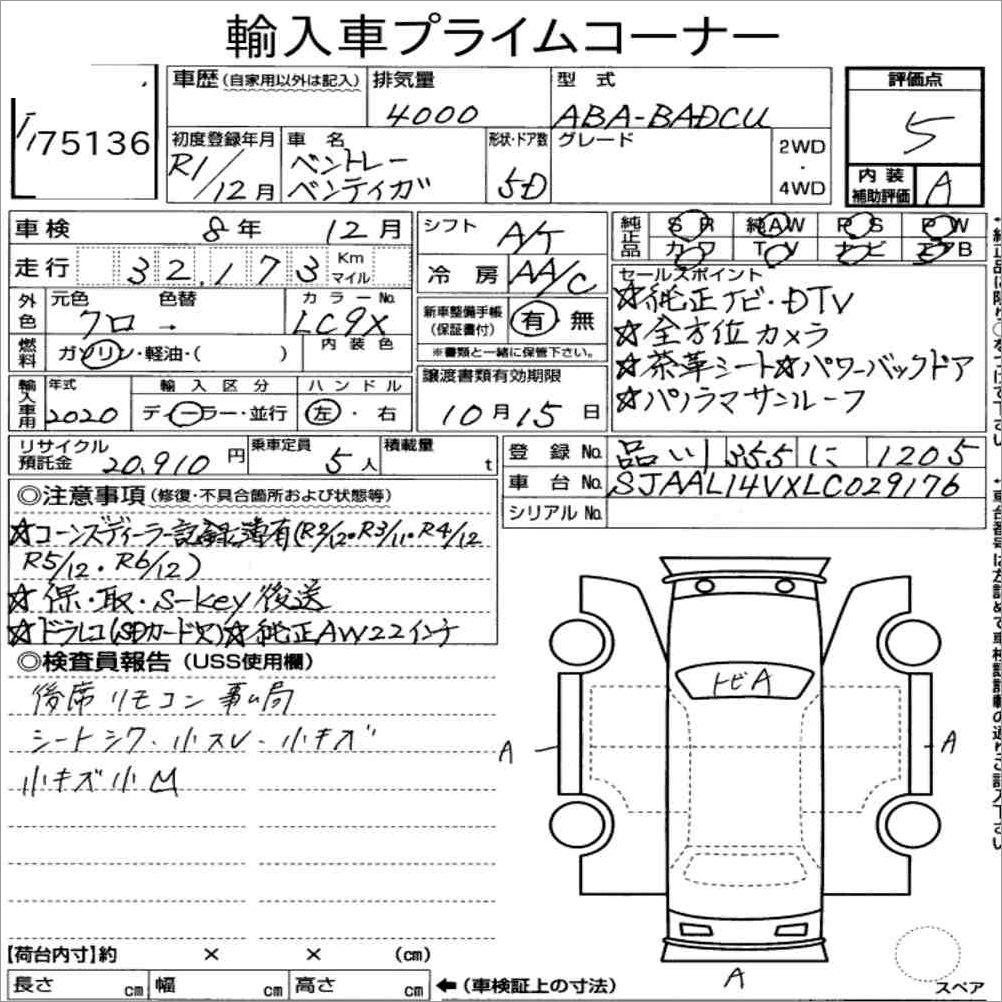 輸入車プライムコーナー
75136
車歴(自家用以外は記入)
排気量
4000
型式
ABA-BADCU
評価点
5
初度登録年月
R1/12月
車名
ベントレー
ベンテイガ
形状・ドア数
5D
グレード
2WD
・
4WD
内装
補助評価
A
車検 8年 12月
走行 32,173 Km マイル
外色
元色 クロ
色替 →
カラーNo. LC9X
燃料
ガソリン・軽油・( )
内装色
輸入車用
年式 2020
輸入区分
ディーラー・並行
ハンドル
左・右
リサイクル
預託金 20,910円
乗車定員 5人
積載量 t
シフト A/T
冷房 AA/C
新車整備手帳
(保証書付)
有・無
※書類と一緒に保管下さい。
譲渡書類有効期限
10月15日
純正品
SR 純AW PS PW
カワ TV ナビ エアB
セールスポイント
☆純正ナビ・DTV
☆全方位カメラ
☆茶革シート☆パワーバックドア
☆パノラマサンルーフ
登録No. 品川 355 に 1205
車台No. SJAAL14VXLC029176
シリアルNo.
◎注意事項(修復・不具合箇所および状態等)
☆コーンズディーラー記録簿有(R2/12・R3/11・R4/12
R5/12・R6/12)
☆保・取・S-key後送
☆ドラレコ(SDカード欠)☆純正AW22インチ
◎検査員報告(USS使用欄)
後席リモコン事ム局
シートシワ・小スレ・小キズ
小キズ小凹
トビA
A
A
A
【荷台内寸】約 × × (cm)
長さ cm 幅 cm 高さ cm ←(車検証上の寸法)
スペア